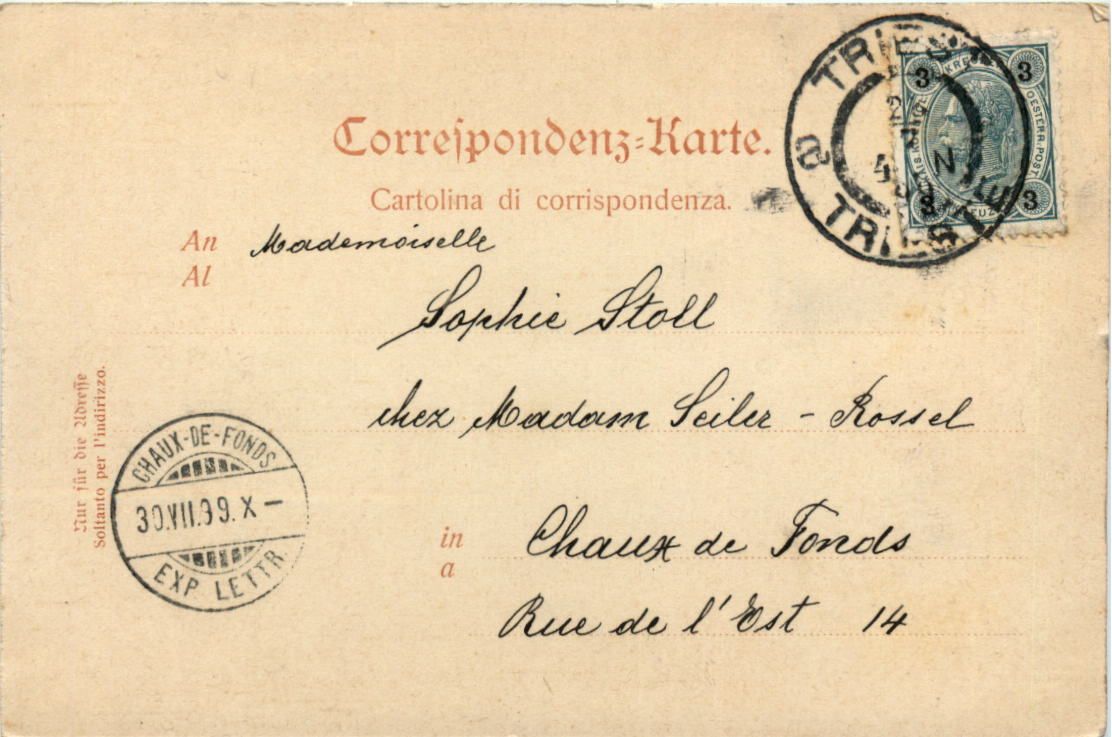 Correspondenz-Karte.
Cartolina di corrispondenza.
An
Al
Mademoiselle
Sophie Stoll
chez Madam Seiler - Rossel
in
a
Chaux de Fonds
Rue de l'Est 14
Nur für die Adresse
Soltanto per l'indirizzo.
CHAUX-DE-FONDS
30.VII.99. X -
EXP. LETTR.
TRIEST
TRIEST
3
3
OESTERR. POST
3
3